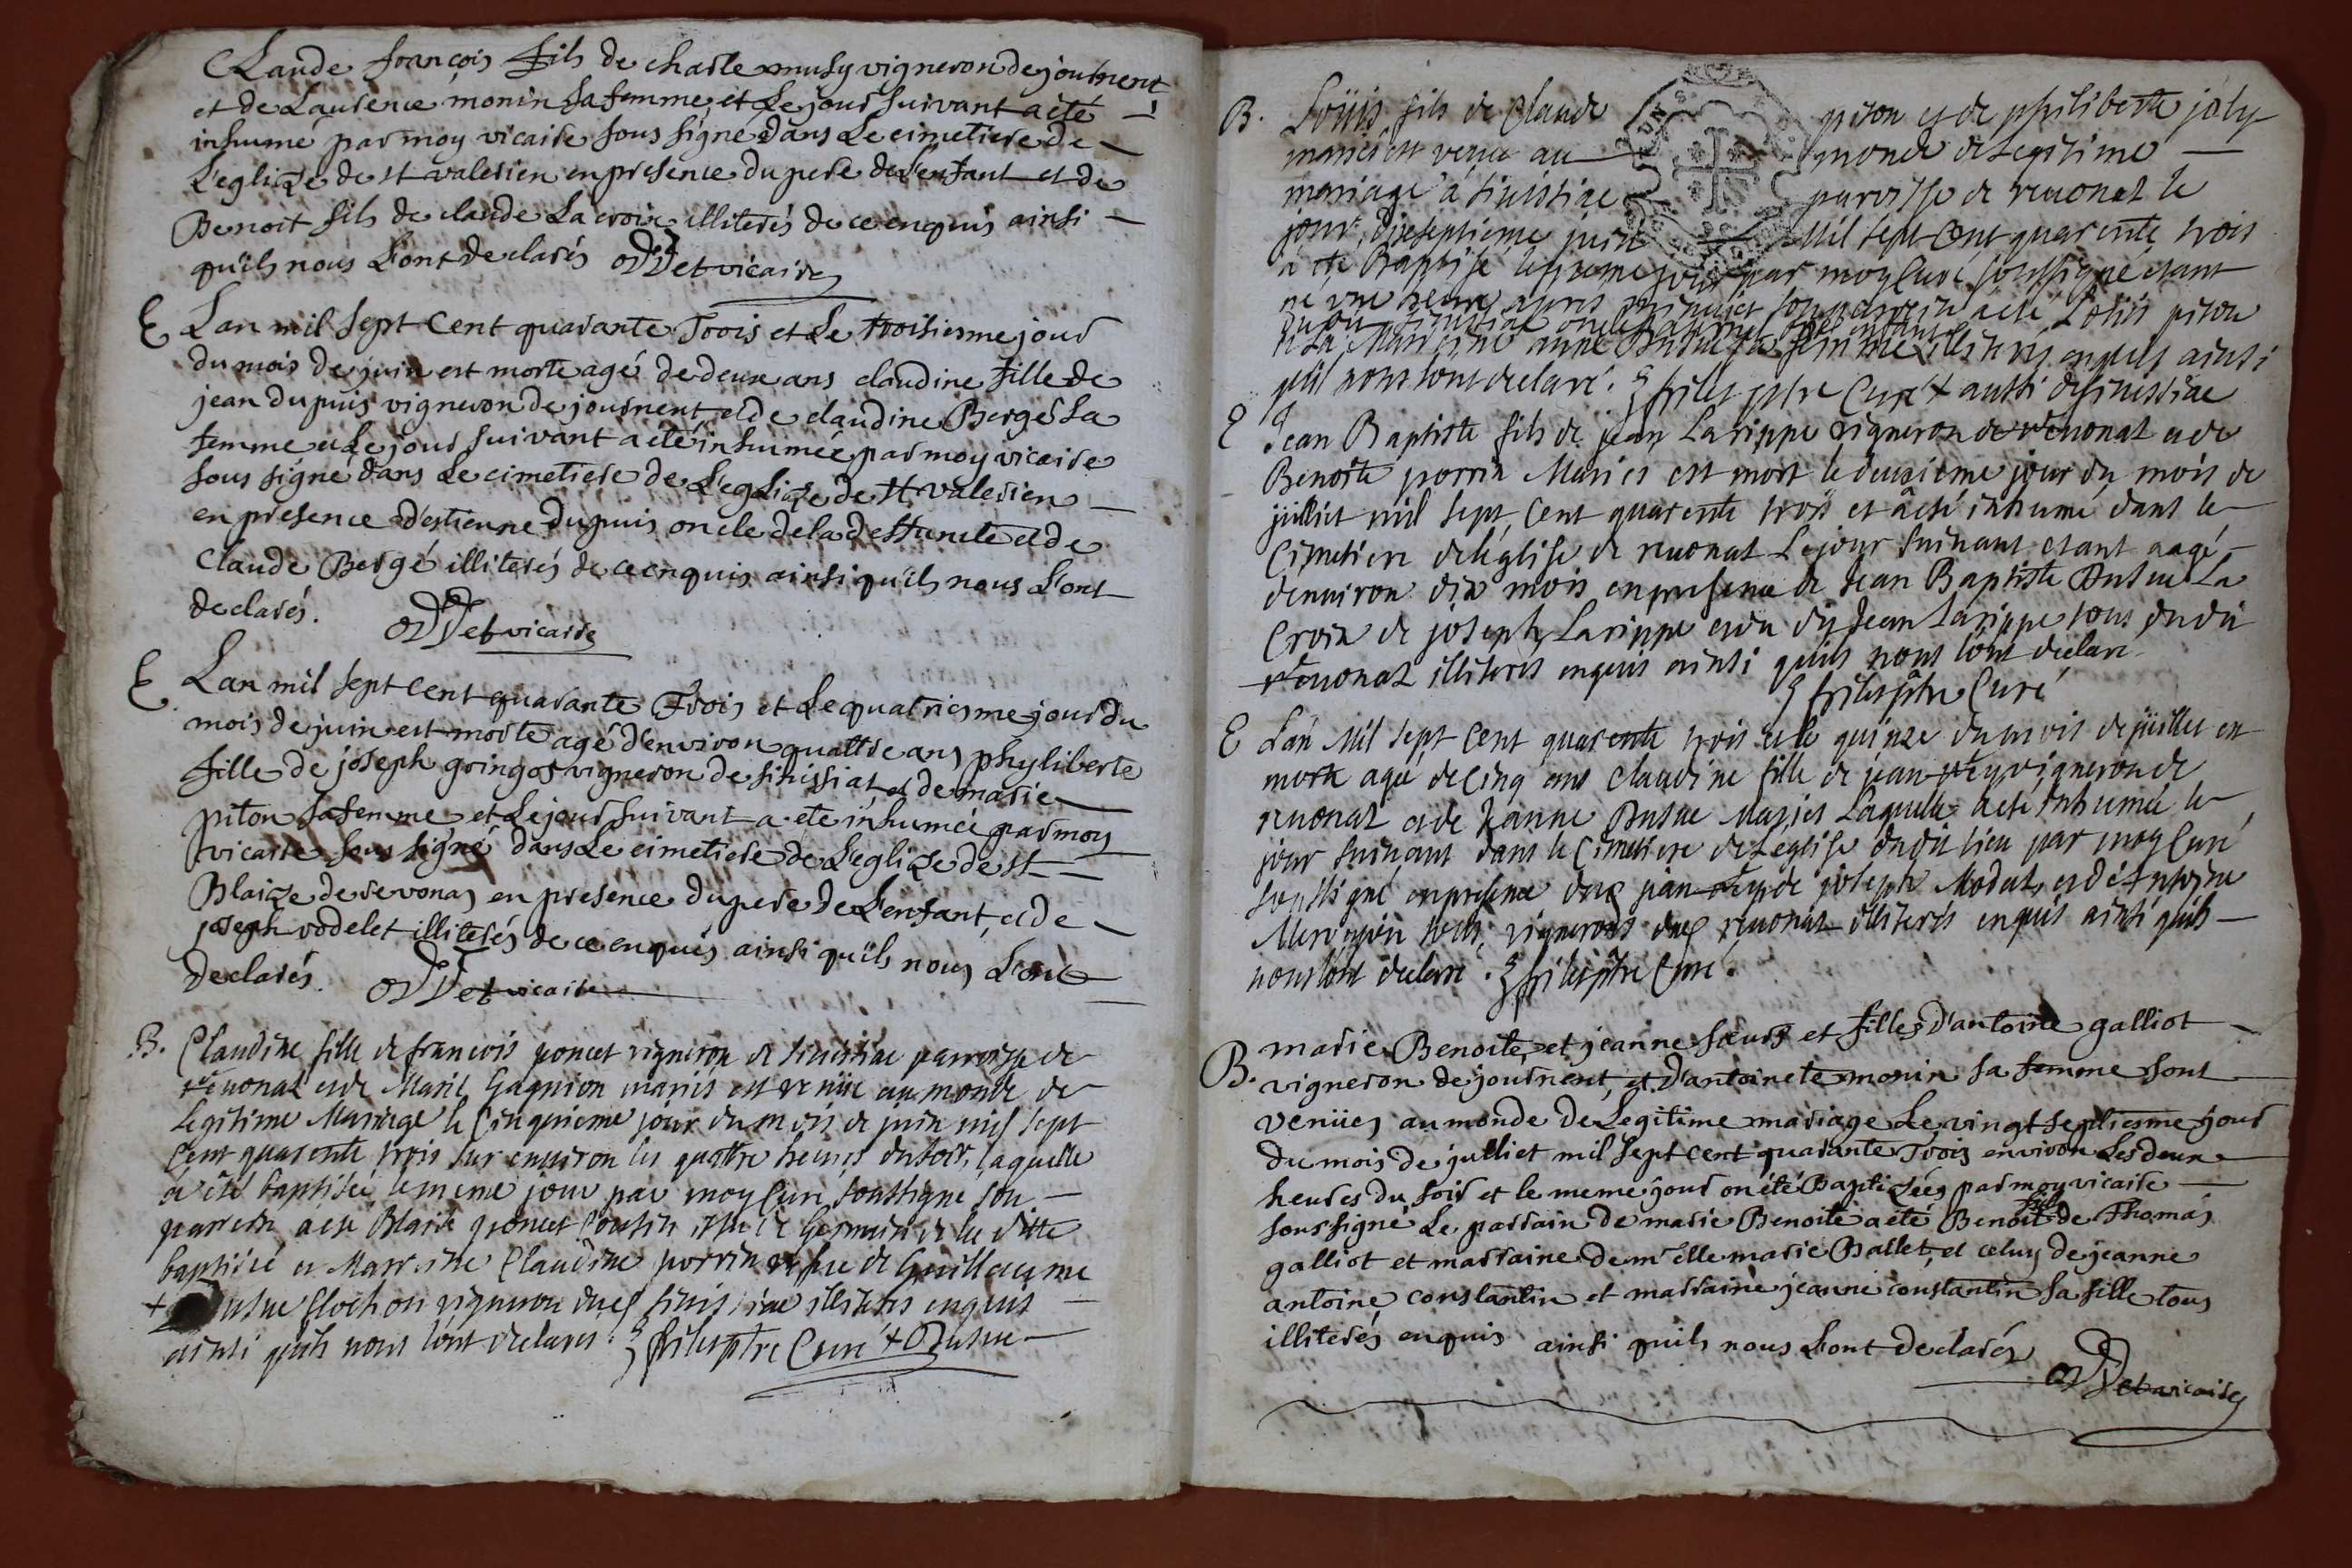 Claude françois fils de charle musy vigneron de journent
et de Laurence monin sa femme, et Le jour suivant a été
inhumé par moy vicaire sous signé dans Le cimetiere de
L'eglize de st valerien en presence du pere de L'enfant et de
Benoit fils de claude La croix illiterés de ce enquis ainsi
qu'ils nous L'ont declarés vicaire
E Lan mil sept cent quarante Trois et Le troisiesme jour
du mois de juin est morte agé de deux ans claudine fille de
jean dupuis vigneron de journent et de claudine Bergé sa
femme et Le jour suivant a été inhumée par moy vicaire
sous signé dans Le cimetiere de L'eglize de st valerien
en presence d'estienne dupuis oncle de la deffuncte et de
Claude Bergé illiterés de ce enquis ainsi qu'ils nous L'ont
declarés. vicaire
E Lan mil sept cent quarante Trois et Le quatriesme jour du
mois de juin est morte agé d'environ quattre ans phyliberte
fille de joseph gringoz vigneron de sinissiat et de marie
piton sa femme et Le jour suivant a été inhumée par moy
vicaire sous signé dans Le cimetiere de L'eglize de st
Blaize de revonas en presence du pere de L'enfant, et de
joseph vodelet illiterés de ce enquis ainsi qu'ils nous L'ont
declarés. vicaire
B. Claudine fille de francois poncet vigneron de sinissiac parroisse de
revonat et de Marie Gagnion mariés est venüe au monde de
Legitime Mariage le Cinquieme jour du mois de juin mil sept
Cent quarente trois sur environ les quattre heures du soir, laquelle
a été baptisée le meme jour par moy Curé soussigné son
parrein a esté Blaise poncet Cousin issu de Germain de la ditte
baptisée et Marreine Claudine porrin de Guillaume
+ Clochon vigneron illiterés enquis
ainsi quils nous lont declarés. ptre Curé +
B. Loüis fils de Claude piton et de philiberte joly
mariés est venu au monde de Legitime
mariage à sinissiac parroisse de revonat le
jour, dixseptieme juin Mil sept Cent quarente trois
a été Baptisé le meme jour par moy Curé soussigné etant
né une heure apres minuict son parrein a esté Loüis piton
dudit sinissiac oncle paternel
et La Marreine anne sa femme illiterés enquis ainsi
quil nous lont declaré. ptre Curé + aussi de sinissiac
E Jean Baptiste fils de jean Larippe vigneron de revonat et de
Benoite porrin Mariés est mort le deuxieme jour du mois de
juillet mil sept Cent quarente trois et a esté inhumé dant le
Cimetiere de l'eglise de revonat Le jour suivant etant aagé
d'environ dix mois en presence de Jean Baptiste La
Croix de joseph Larippe et du dit Jean Larippe tous dudit
revonat illiterés enquis ainsi quils nous lont declaré
ptre Curé
E Lan Mil sept Cent quarente trois et le quinze du mois de juillet est
morte agée de Cinq ans Claudine fille de jean vigneron de
revonat et de Jeanne Mariés Laquelle a esté Inhumée le
jour suivant dans le Cimetiere de l'eglise dudit lieu par moy Curé
soussigné en presence jean de joseph et d'Antoine
tous vignerons revonat illiterés enquis ainsi quils
nous lont declaré. ptre Curé.
B. marie Benoite, et jeanne sœurs et filles d'antoine galliot
vigneron de journent, et d'antoinete monin sa femme sont
venües au monde de Legitime mariage Le vingt septiesme jour
du mois de julliet mil sept cent quarante Trois environ Les deux
heures du soir et le meme jour on été Baptizées par moy vicaire
soussigné Le parrain de marie Benoite a été Benoit fils de Thomas
galliot et marraine demelle marie Ballet, et celuy de jeanne
antoine constantin et marraine jeanne constantin sa fille tous
illiterés enquis ainsi quils nous L'ont declarés
vicaire